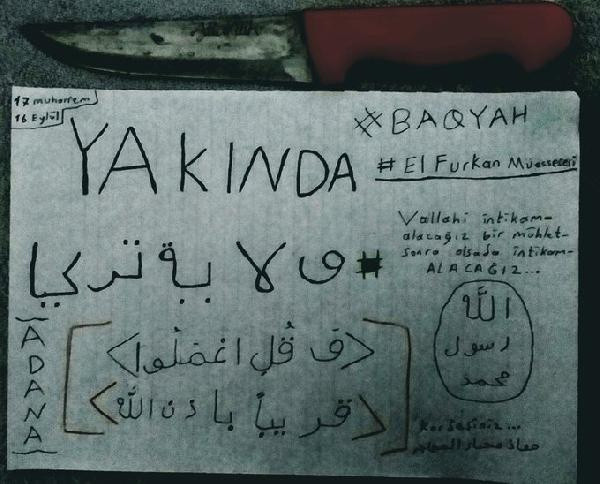 17 muharrem
16 Eylül
#BAQYAH
YAKINDA
# El Furkan Müessesesi
Vallahi intikam-
alacağız bir mühlet-
sonra olsada intikam-
ALACAĞIZ...
# ولاية تركيا
ADANA
<ف قُلِ اعْمَلُوا>
<قريباً باذن الله>
الله
رسول
محمد